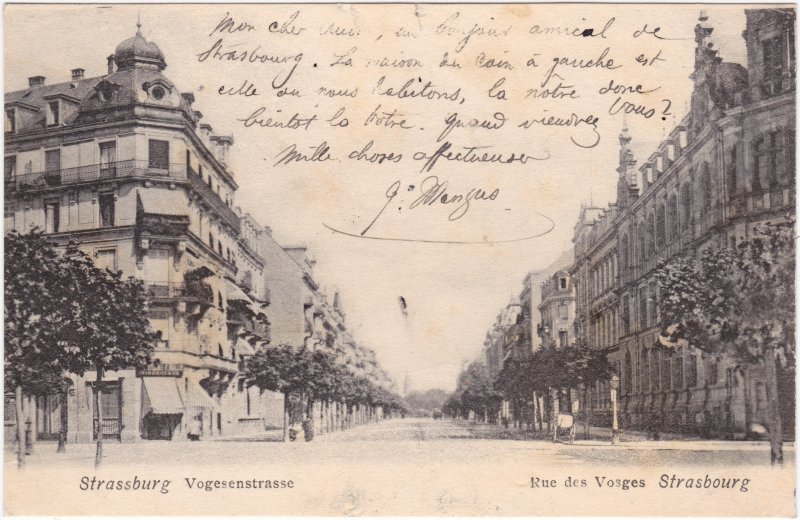 Mon cher ami, un bonjour amical de
Strasbourg. La maison du coin à gauche est
celle où nous habitons, la nôtre donc
bientôt la vôtre. Quand viendrez vous?
Mille choses affectueuses
G. Mengus
Strassburg Vogesenstrasse
Rue des Vosges Strasbourg